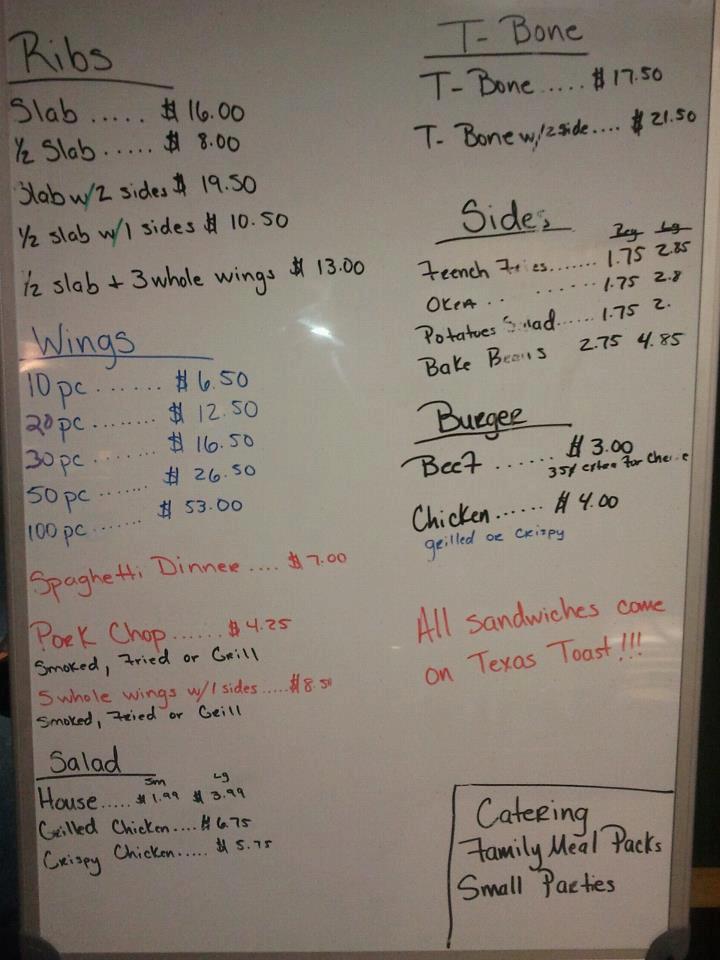 Ribs
Slab ..... $ 16.00
1/2 Slab ..... $ 8.00
Slab w/2 sides $ 19.50
1/2 slab w/1 sides $ 10.50
1/2 slab + 3 whole wings $ 13.00
Wings
10 pc ....... $ 6.50
20 pc ........ $ 12.50
30 pc ........ $ 16.50
50 pc ....... $ 26.50
100 pc ....... $ 53.00
Spaghetti Dinner .... $ 7.00
Pork Chop ...... $ 4.25
Smoked, Fried or Grill
5 whole wings w/1 sides ..... $8.50
Smoked, Fried or Grill
Salad
Sm Lg
House ..... $ 1.99 $ 3.99
Grilled Chicken .... $ 6.75
Crispy Chicken ..... $ 5.75
T- Bone
T- Bone ..... $ 17.50
T- Bone w/2 side .... $ 21.50
Sides
Reg Lg
Feench Fries ....... 1.75 2.85
Okra .. ...... 1.75 2.8
Potatoes Salad ...... 1.75 2.
Bake Beans 2.75 4.85
Burger
Beef ...... $ 3.00
35¢ extra for cheese
Chicken ...... $ 4.00
grilled or crispy
All sandwiches come
on Texas Toast!!!
Catering
Family Meal Packs
Small Parties